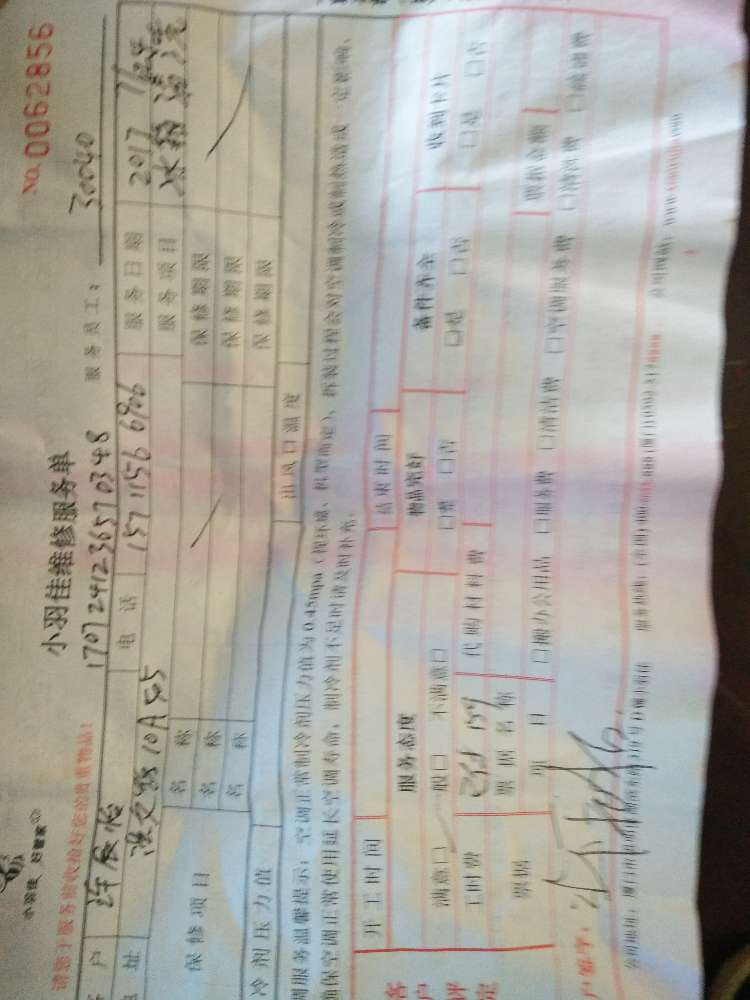 小羽佳 好管家
No. 0062856
小羽佳维修服务单
17072412365703 48
请您于服务前收拾好您的贵重物品！
服务员工：30040
客户 许辰怡 电话 157 1156 6906 服务日期 2017 7/24
地址 10A 服务项目 冰箱清洗
保修项目 名称 保修期限
名称 保修期限
名称 保修期限
冷剂压力值 出风口温度
调服务温馨提示：空调正常制冷剂压力值为0.45mpa（视环境、机型而定），拆装过程会对空调制冷或制热造成一定影响，
确保空调正常使用延长空调寿命，制冷剂不足时请及时补充。
开工时间 结束时间
客户评定 服务态度 物品完好 备件齐全 收到卡片
满意口 一般口 不满意口 口是 口否 口是 口否 口是 口否
工时费 159 代购材料费
票据 票据名称 票据金额
项目 口搬办公用品 口服务费 口清洁费 口空调服务费 口清洗费
户签字：